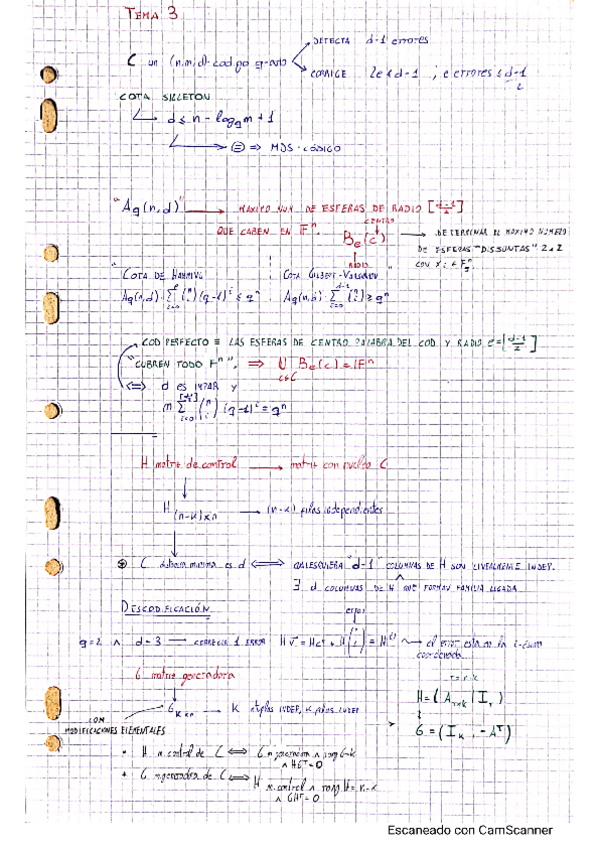 TEMA 3
C un (n,m,d)-código q-ario
DETECTA d-1 errores
CORRIGE 2e ≤ d-1 ; e errores ≤ d-1/2
COTA SINGLETON
d ≤ n - log_q m + 1
⊜ ⇒ MDS-CÓDIGO
"Aq(n,d)" → MAXIMO NUM DE ESFERAS DE RADIO [d-1/2]
QUE CABEN EN F^n.
CENTRO
Be(c)
RADIO
→ DETERMINAR EL MAXIMO NÚMERO
DE ESFERAS "DISJUNTAS" 2 a 2
"COTA DE HAMMING
Aq(n,d) · Σ (n i) (q-1)^i ≤ q^n
COTA GILBERT-VARSHAMOV"
COD PERFECTO ≡ LAS ESFERAS DE CENTRO PALABRA DEL COD. Y RADIO e=[d-1/2]
"CUBREN TODO F^n". ⇒ ∪ Be(c) = F^n
c∈C
⟺ d ES IMPAR y
m Σ (n i) (q-1)^i = q^n
H matriz de control → matriz con nucleo C
H (n-k)×n → (n-k) filas independientes
C distancia minima es d ⟺ CUALESQUIERA "d-1" COLUMNAS DE H SON LINEALMENTE INDEP.
∧
∃ d COLUMNAS DE H QUE FORMAN FAMILIA LIGADA
DESCODIFICACIÓN
error
q=2 ∧ d=3 → CORREGIR 1 ERROR
el error esta en la i-esima
coordenada
G matriz generadora
G k×n → K FILAS INDEP
CON
MODIFICACIONES ELEMENTALES
r=n-k
H = (A r×k | I r)
↓
G = (I k, -A^T)
• H m. control de C ⟺ G m. generadora ∧ rang G=k
∧ HG^T=0
• G m. generadora de C ⟺ H m. control ∧ rang H = n-k
∧ GH^T=0
Escaneado con CamScanner